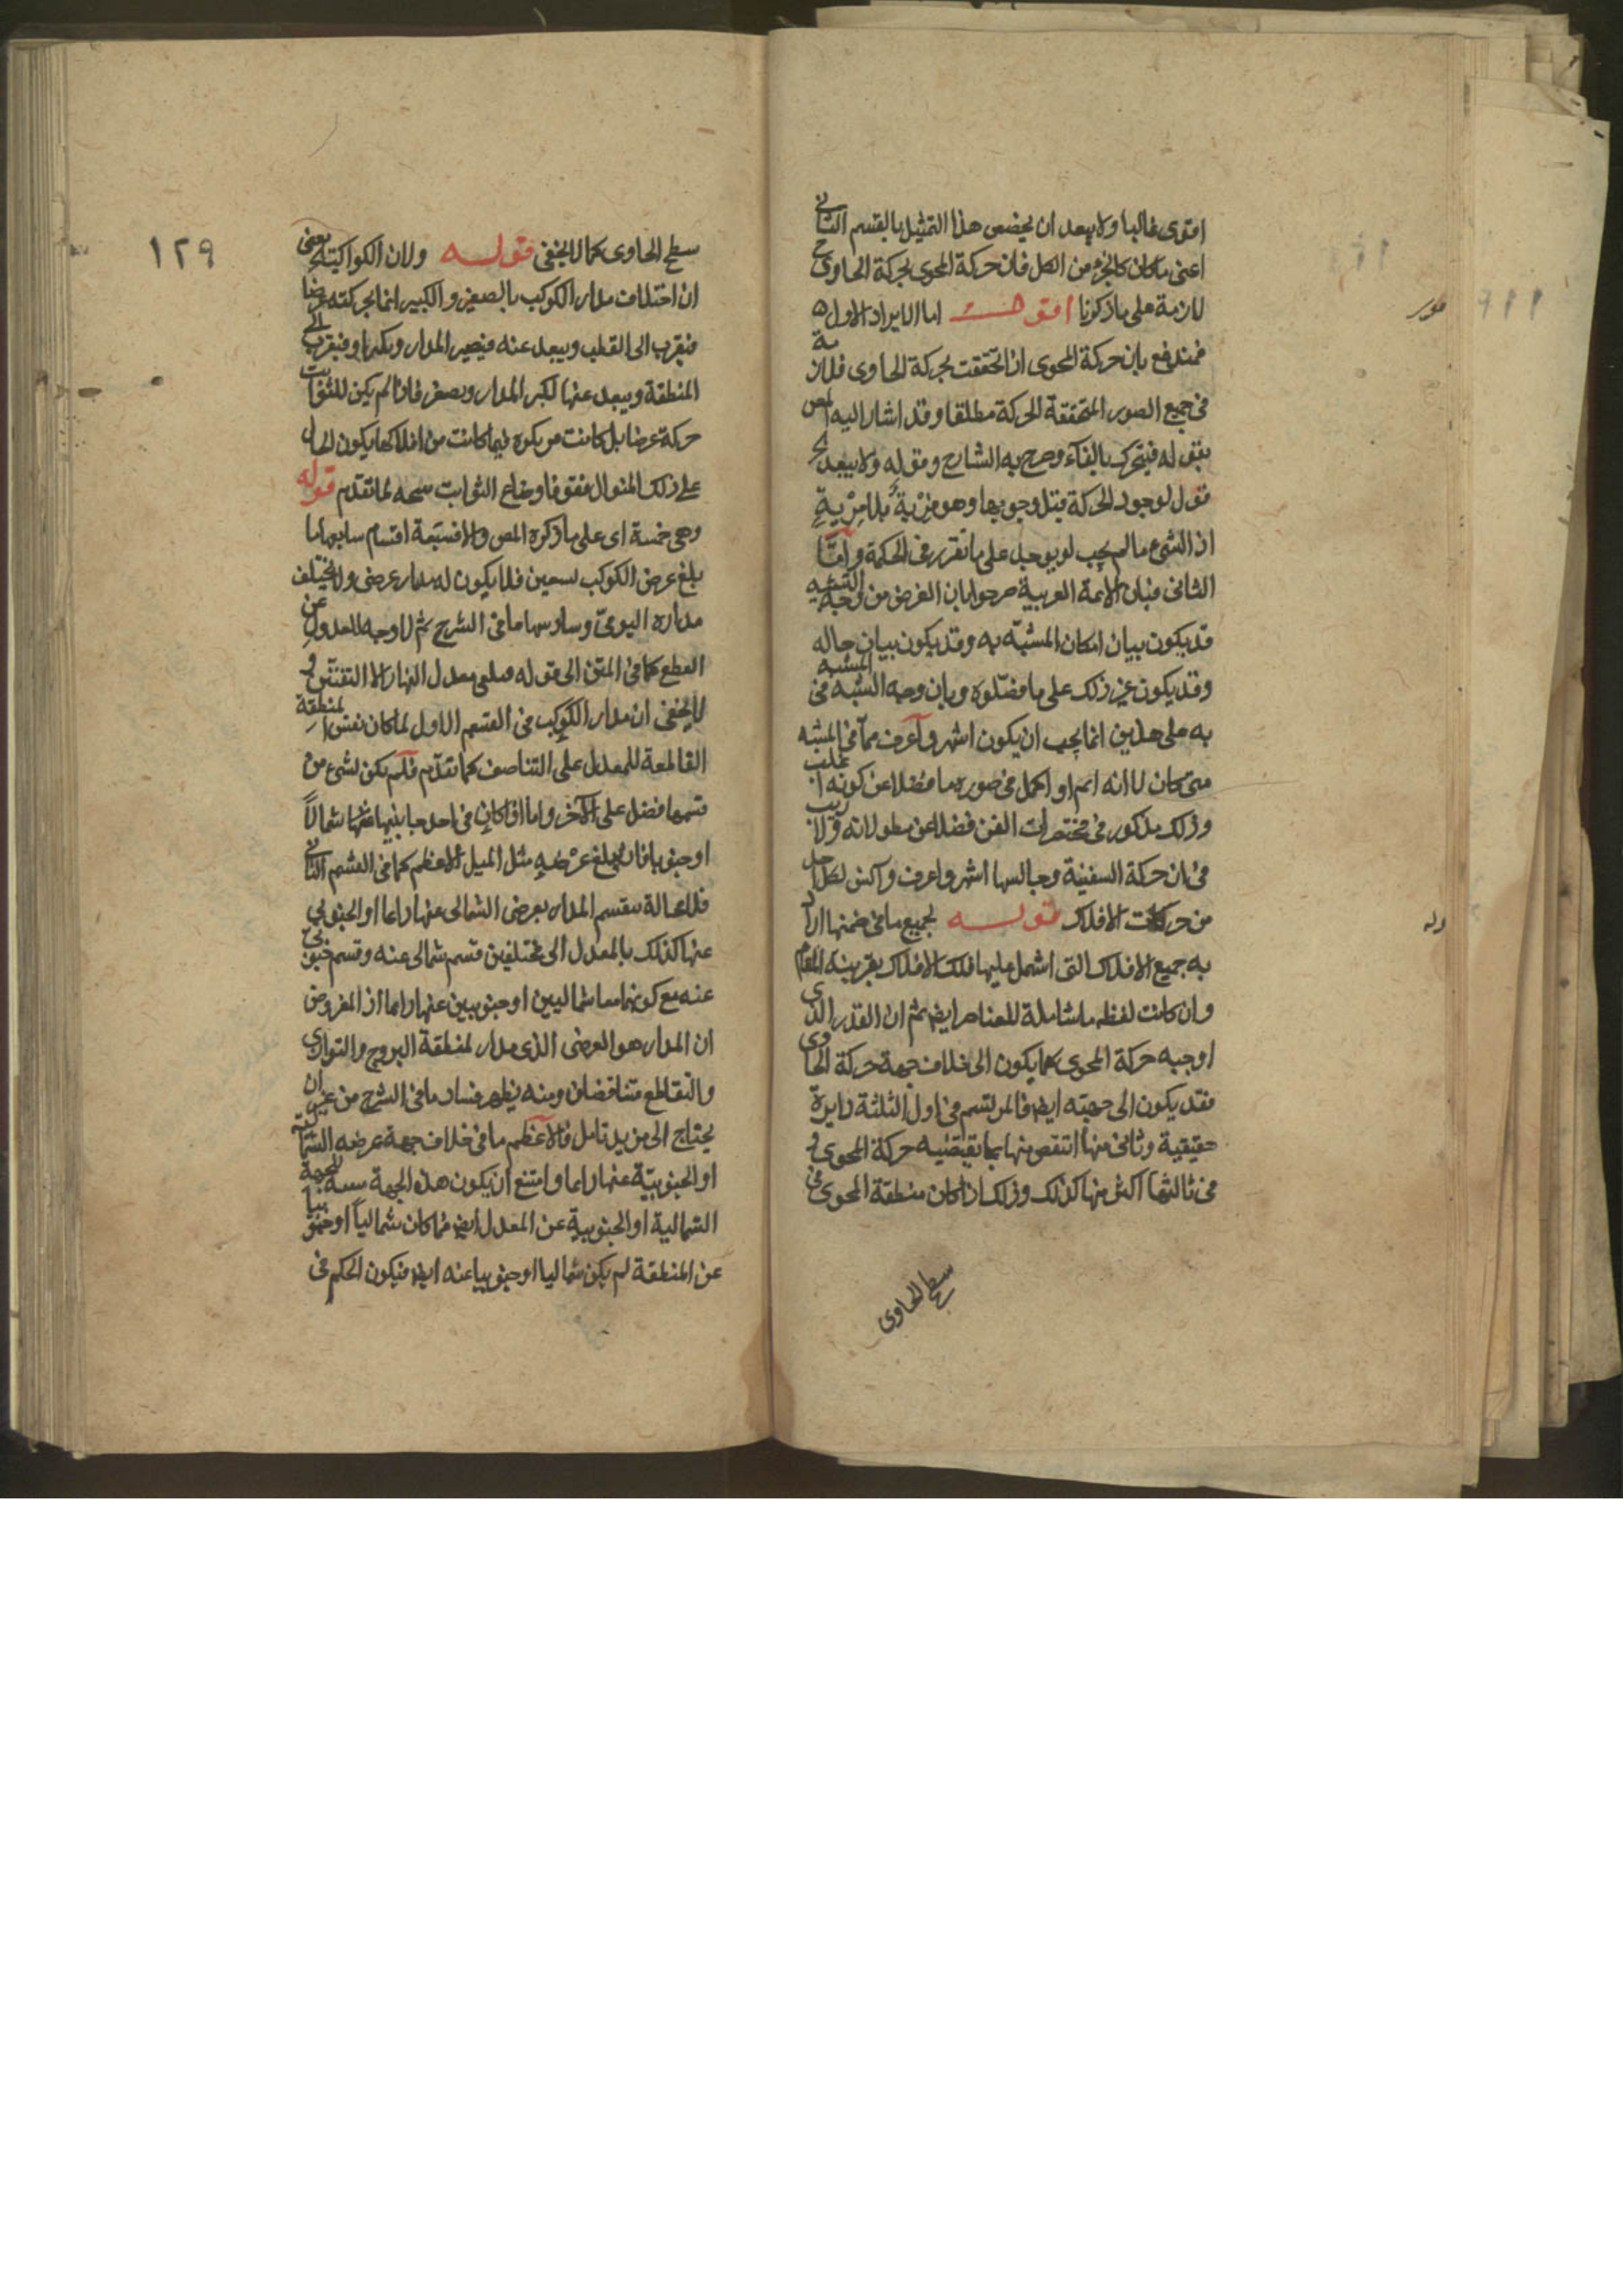 اقوى غالبا ولا يبعد ان يخصص هذا التمثيل بالقسم الثانى
اعنى ما كان كالجزء من الكل فان حركة المحوى بحركة الحاوى ح
لازمة على ما ذكرنا اقول اما الايراد الاول
فمندفع بان حركة المحوى ان تحققت بحركة الحاوى فلازمة
فى جميع الصور المتحققة الحركة مطلقا وقد اشار اليه المص
بقوله فيتحرك بالفاء وصرح به الشارح وقوله ولا يبعد ح
قول لوجود الحركة قبل وجوبها وهو فرية بلا مرية
اذ الشىء ما لم يجب لم يوجد على ما تقرر فى الحكمة واما
الثانى فبان الائمة العربية صرحوا بان الغرض من التشبيه
قد يكون بيان امكان المشبه به وقد يكون بيان حاله
وقد يكون غير ذلك على ما فصلوه وبان وجه الشبه فى المشبه
به على هذين انما يجب ان يكون اشهر واعرف مما فى المشبه
متى كان لا انه اتم او اكمل فى صورة ما فضلا عن كونه اغلب
وذلك مذكور فى مختصرات الفن فضلا عن مطولاته ولا ريب
فى ان حركة السفينة وجالسها اشهر واعرف وآنس لكل احد
من حركات الافلاك قوله لجميع ما فى ضمنها اراد
به جميع الافلاك التى اشتمل عليها فلك الافلاك بقرينة المقام
وان كانت لفظه ما شاملة للعناصر ايض ثم ان القدر الذى
اوجبه حركة المحوى كما يكون الى خلاف جهة حركة الحاوى
فقد يكون الى جهته ايض فالمرتسم فى اول الثلثة دايرة
حقيقية وثانى منها انتقص منها بما تقتضيه حركة المحوى و
فى ثالثها اكثر منها كذلك وذلك اذا كان منطقة المحوى فى
سطح الحاوى
١٢٩
سطح الحاوى كما لا يخفى قوله ولان الكواكب يعنى
ان اختلاف مدار الكوكب بالصغير والكبير انما بحركته عرضا
فيقرب الى القطب ويبعد عنه فيصير المدار ويكبر او فيقرب الى
المنطقة ويبعد عنها لكبر المدار ويصغر فاذا لم يكن للثوابت
حركة عرضا بل كانت مركوزه فيما كانت من افلاكها يكون الحال
على ذلك المنوال فقوله اوضاع الثوابت لما تقدم قوله
وهى خمسة اى على ما ذكره المص والا فسبعة اقسام سابعها ما
بلغ عرض الكوكب تسعين فلا يكون له مدار عرضى ولا يختلف
مداره اليومى وسادسها ما فى الشرح ثم لا وجه للعدول عن
القطع كما فى المتن الى قوله وعلى معدل النهار الا التفنن و
لا يخفى ان مدار الكوكب فى القسم الاول لما كان نفس المنطقة
القاطعة للمعدل على التناصف كما تقدم فلم يكن لشىء من
قسمها فضل على الآخر واما اذا كان فى احد جانبيها عنها شمالاً
او جنوبا فان لم يبلغ عرضه مثل الميل الاعظم كما فى القسم الثانى
فلا محالة ينقسم المدار بعرضى الشمالى عنها داعا او الجنوبى
عنها كذلك بالمعدل الى مختلفين قسم شمالى عنه وقسم جنوبى
عنه مع كونهما معا شماليين او جنوبيين عنها دايما اذ المفروض
ان المدار هو العرضى الذى مدار لمنطقة البروج والتوازى
والتقاطع متناقضان ومنه يظهر فساد ما فى الشرح من غير ان
يحتاج الى مزيد تامل فالاعظم ما فى خلاف جهة عرضه الشمالية
او الجنوبية عنها دايما وامتنع ان يكون هذه الجهة للجهة
الشمالية او الجنوبية عن المعدل ايض فما كان شمالياً او جنوبيا
عن المنطقة لم يكن شماليا او جنوبيا عنه ايض فيكون الحكم فى